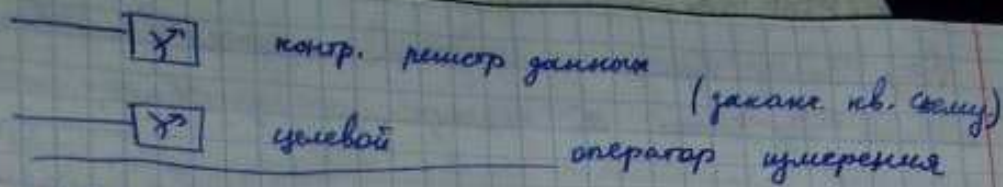 контр. регистр данных
(заканч. кв. схему)
целевой
оператор измерения